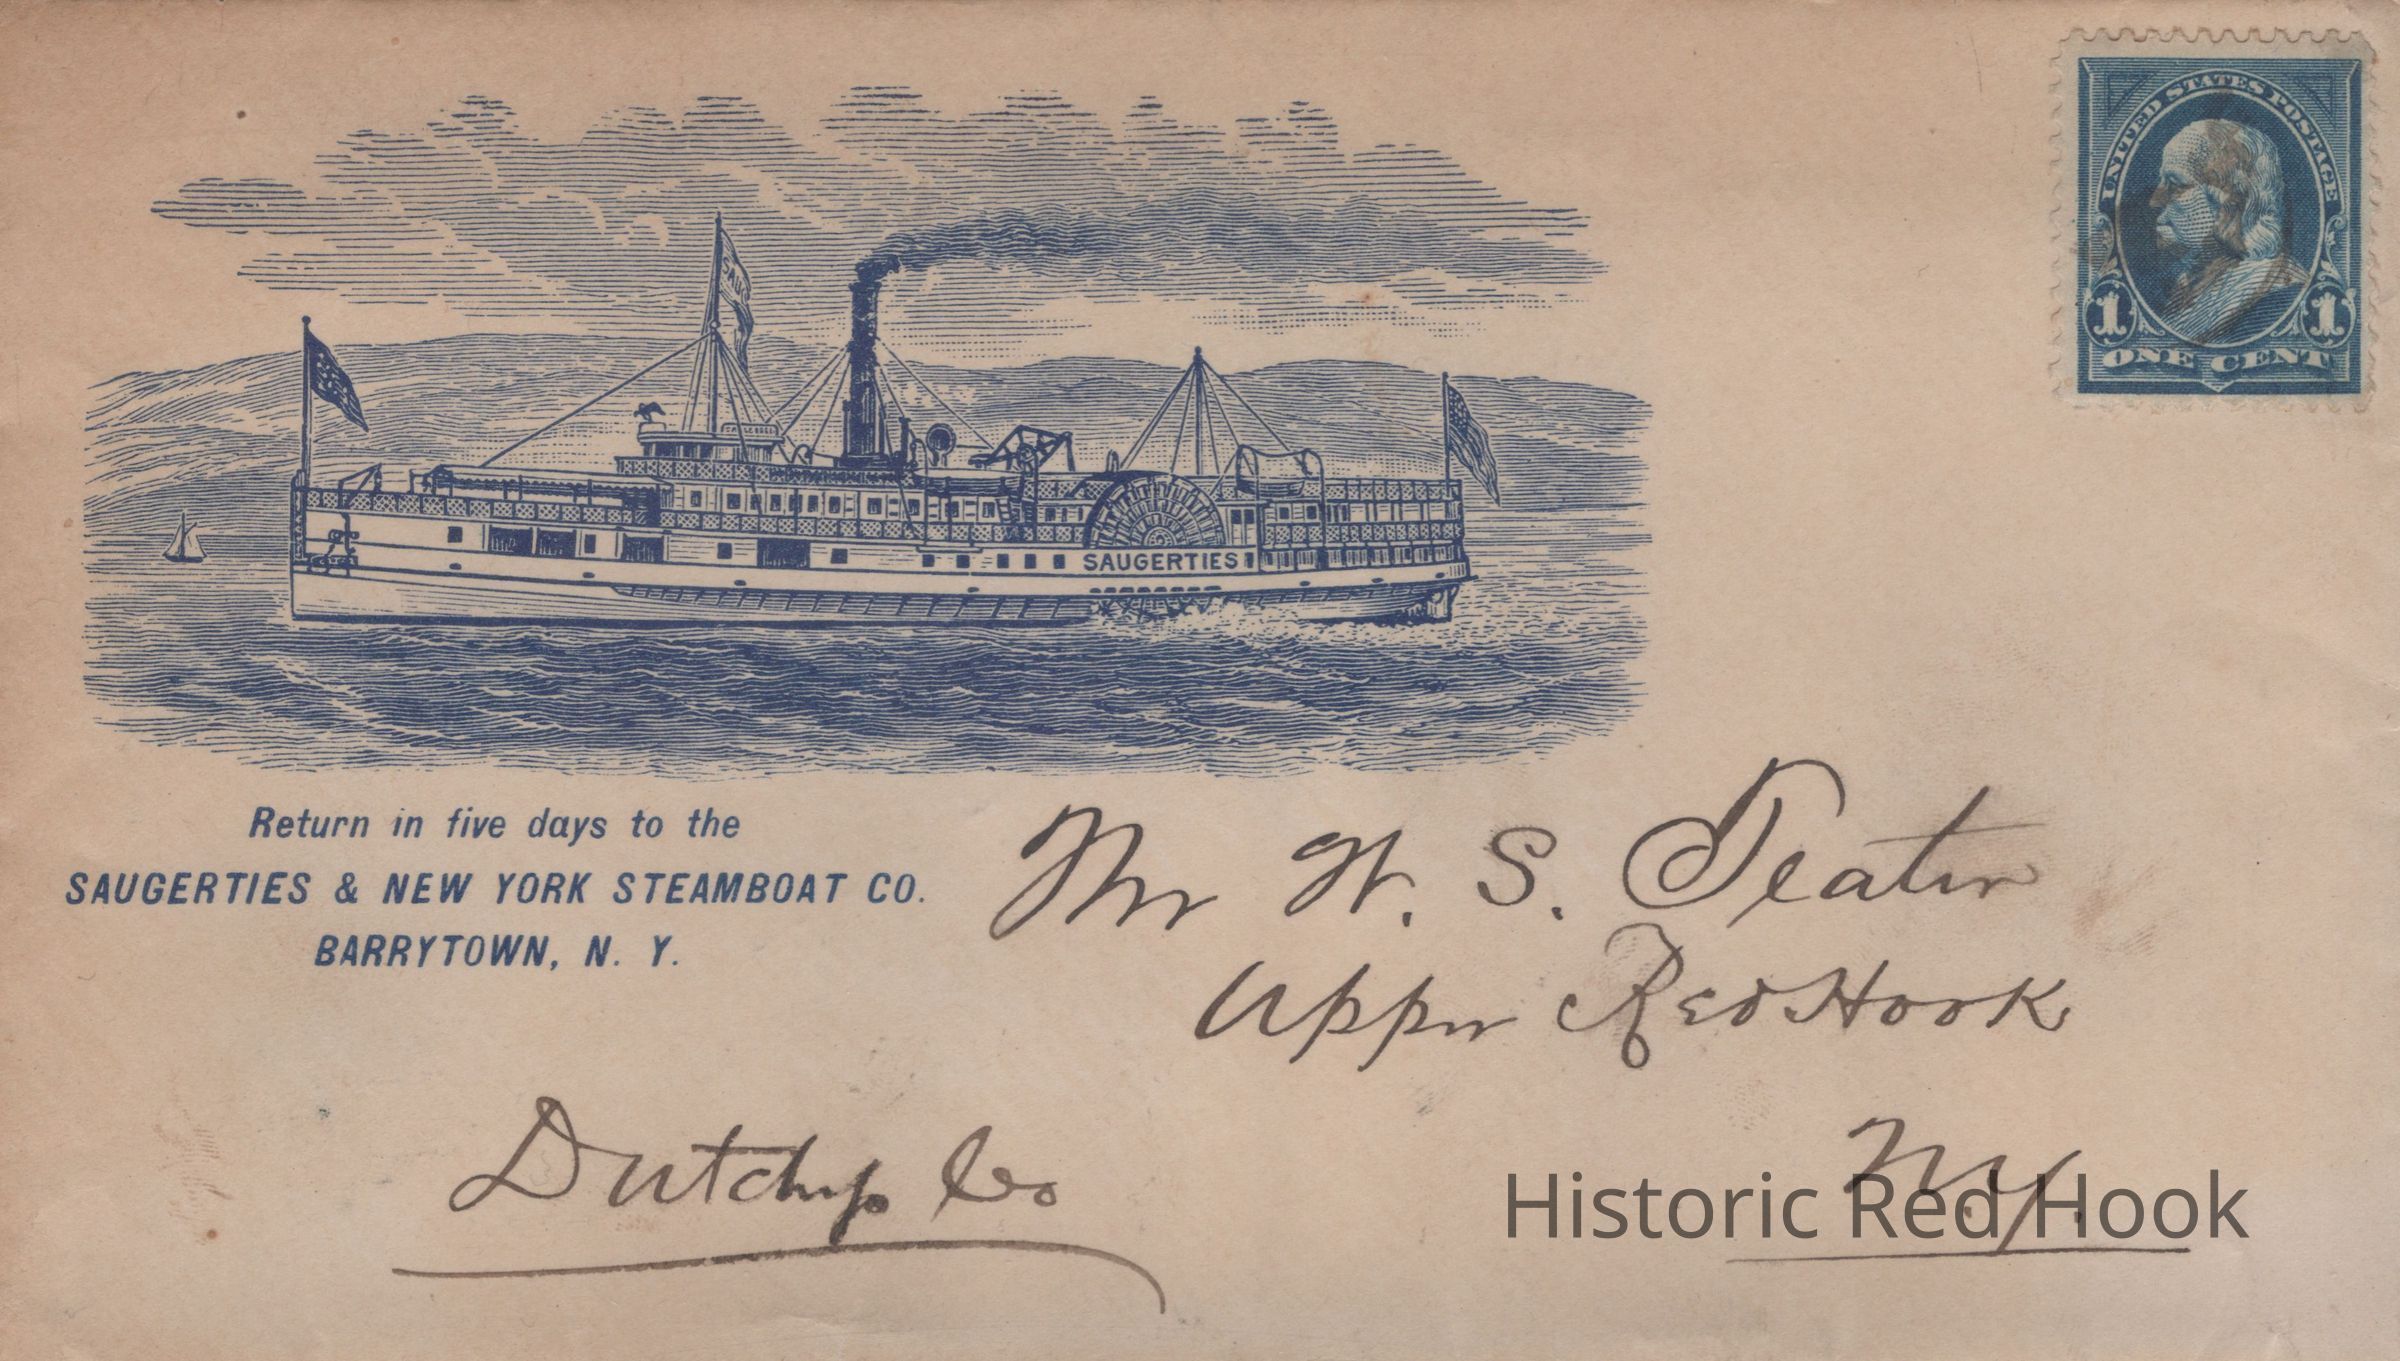 UNITED STATES POSTAGE
1 1
ONE CENT
SAUGERTIES
Return in five days to the
SAUGERTIES & NEW YORK STEAMBOAT CO.
BARRYTOWN, N. Y.
Mr W. S. Teator
Upper Red Hook
N.Y.
Dutchess Co
Historic Red Hook